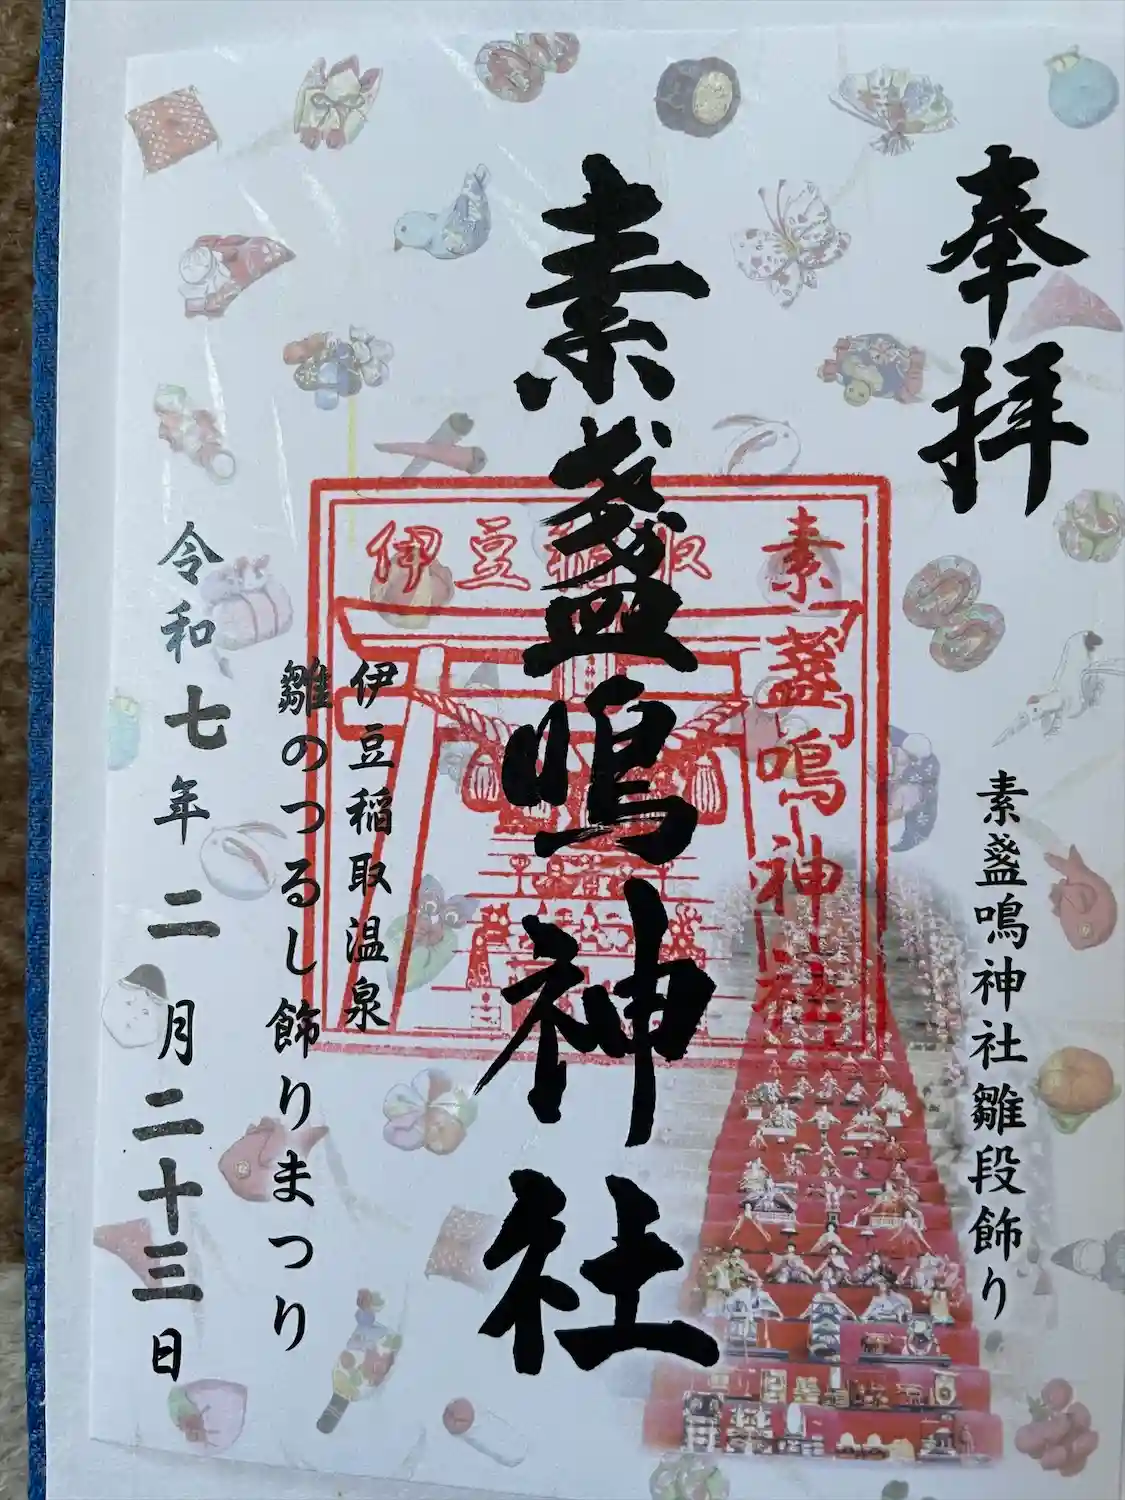 奉拝
素盞鳴神社雛段飾り
素盞鳴神社
伊豆稲取
素盞鳴神社
伊豆稲取温泉
雛のつるし飾りまつり
令和七年二月二十三日